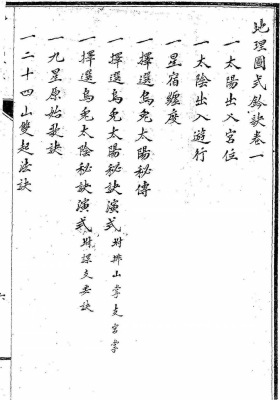 地理圖式鈐訣卷一
一太陽出入宮位
一太陰出入遊行
一星宿纏度
一擇選烏兔太陽秘傳
一擇選烏兔太陽秘訣演式附排山掌走宮掌
一擇選烏兔太陰秘訣演式附課文要訣
一九星原始歌訣
一二十四山雙起法訣